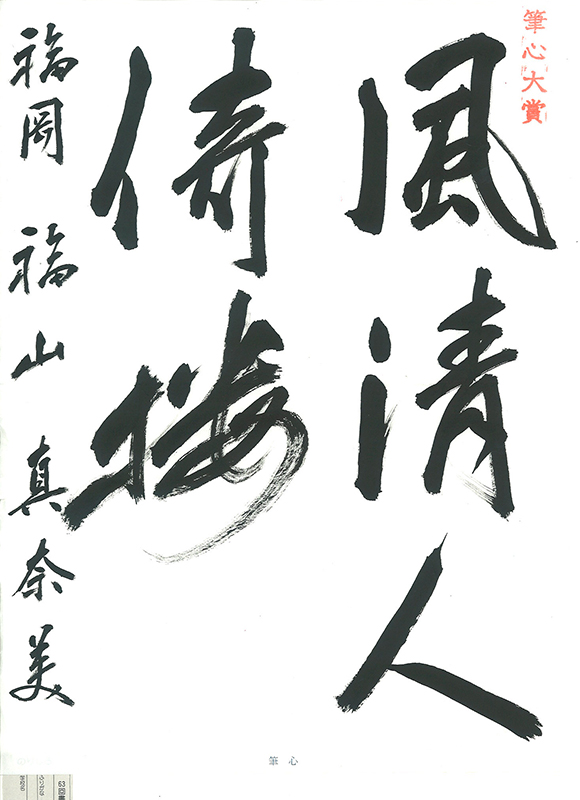 筆心大賞
風清人
倚楼
福岡 福山 真奈美
筆心
63回書